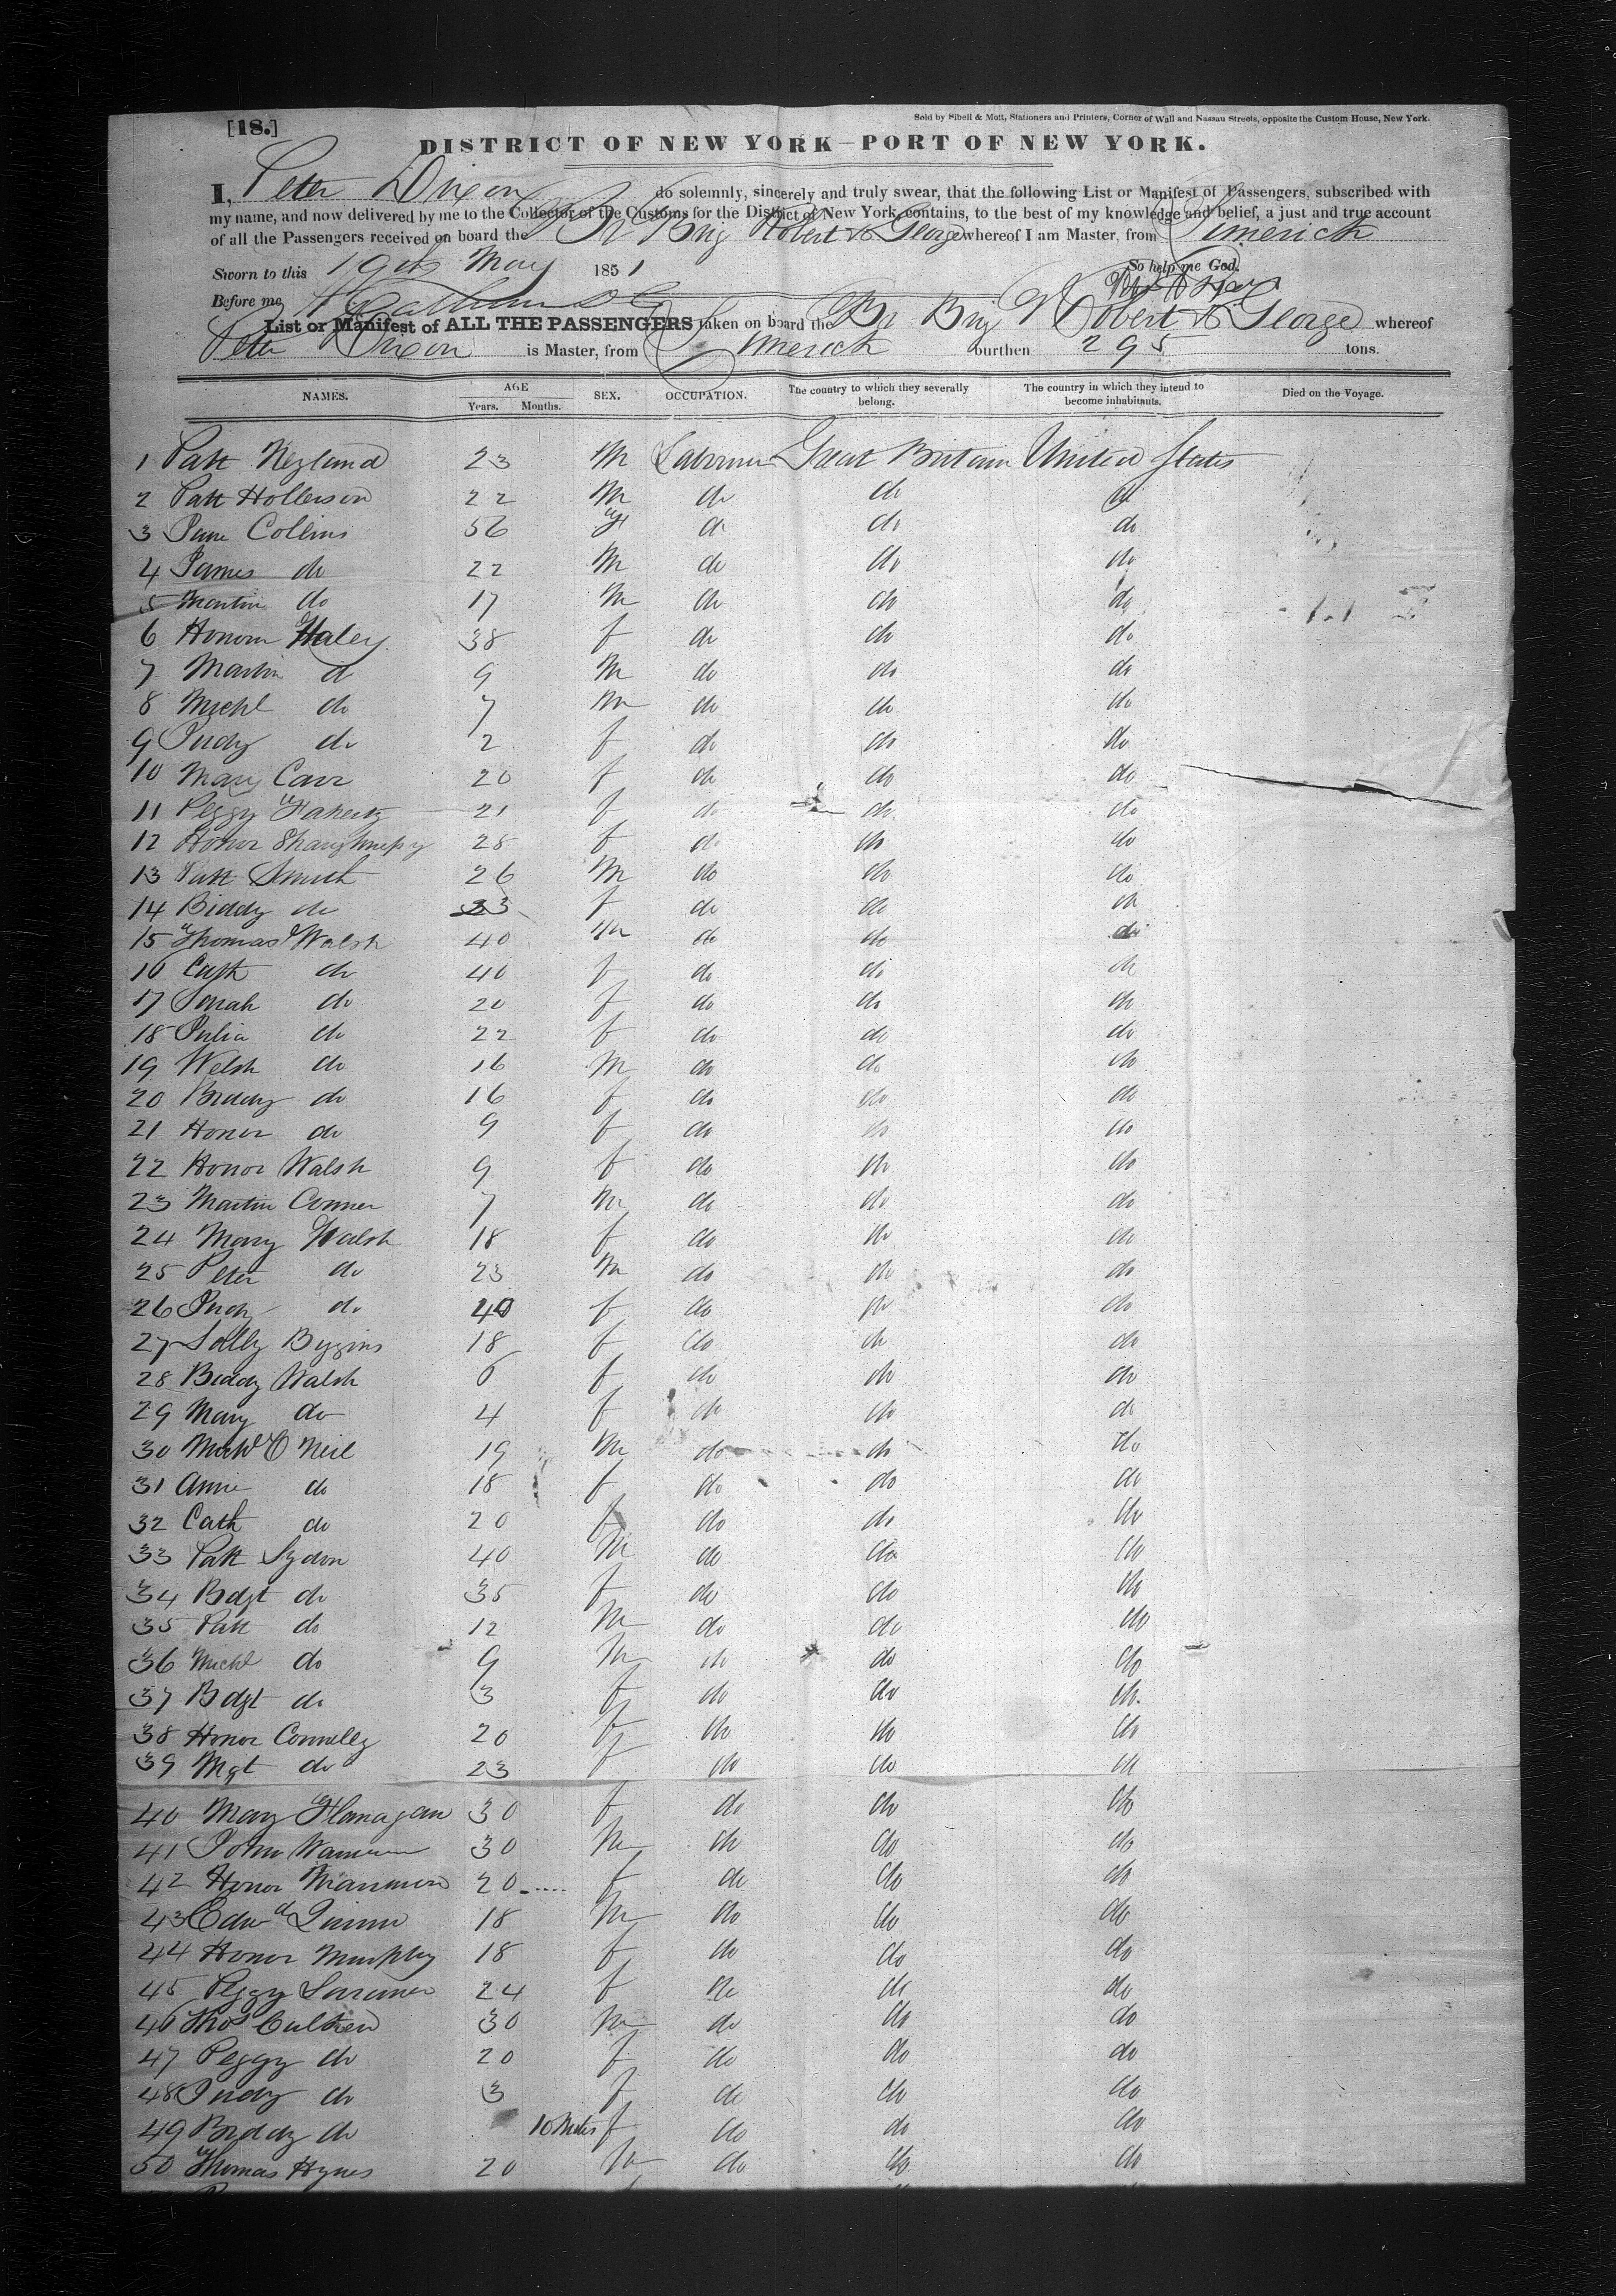 [18.]
Sold by Sibell & Mott, Stationers and Printers, Corner of Wall and Nassau Streets, opposite the Custom House, New York.
DISTRICT OF NEW YORK—PORT OF NEW YORK.
I, Peter Dixon do solemnly, sincerely and truly swear, that the following List or Manifest of Passengers, subscribed with
my name, and now delivered by me to the Collector of the Customs for the District of New York, contains, to the best of my knowledge and belief, a just and true account
of all the Passengers received on board the Br Brig Robert & George whereof I am Master, from Limerick
Sworn to this 19th May 1851 So help me God.
Before me,
List or Manifest of ALL THE PASSENGERS taken on board the Br Brig Robert & George whereof
Peter Dixon is Master, from Limerick burthen 295 tons.
NAMES. AGE Years. Months. SEX. OCCUPATION. The country to which they severally belong. The country in which they intend to become inhabitants. Died on the Voyage.
1 Patt 23 M Labourer Great Britain United States
2 Patt Hollerson 22 M do do do
3 Collins 56 do do do
4 James do 22 M do do do
5 Martin do 17 M do do do
6 Honora 38 f do do do
7 Martin do 9 M do do do
8 Michl do 7 M do do do
9 Judy do 2 f do do do
10 Mary Carr 20 f do do do
11 Peggy Faherty 21 f do do do
12 Honor Shaughnessy 28 f do do do
13 Patt Smith 26 M do do do
14 Biddy do 23 f do do do
15 Thomas Walsh 40 M do do do
16 Cath do 40 f do do do
17 do 20 f do do do
18 Julia do 22 f do do do
19 Welsh do 16 M do do do
20 Biddy do 16 f do do do
21 Honor do 9 f do do do
22 Honor Walsh 9 f do do do
23 Martin Conner 7 M do do do
24 Mary Walsh 18 f do do do
25 Peter do 23 M do do do
26 Judy do 40 f do do do
27 Sally Byzins 18 f do do do
28 Biddy Walsh 6 f do do do
29 Mary do 4 f do do do
30 O Neil 19 M do do do
31 Anne do 18 f do do do
32 Cath do 20 f do do do
33 Patt Lydon 40 M do do do
34 Bdgt do 35 f do do do
35 Patt do 12 M do do do
36 Michl do 9 M do do do
37 Bdgt do 3 f do do do
38 Honor Connelly 20 f do do do
39 Mgt do 23 f do do do
40 Mary Flanagan 30 f do do do
41 John 30 M do do do
42 Honor 20 f do do do
43 Edwd Quinn 18 M do do do
44 Honor Murphy 18 f do do do
45 Peggy 24 f do do do
46 Thos Culken 30 M do do do
47 Peggy do 20 f do do do
48 Judy do 3 f do do do
49 Biddy do 10 Mths f do do do
50 Thomas Hynes 20 M do do do